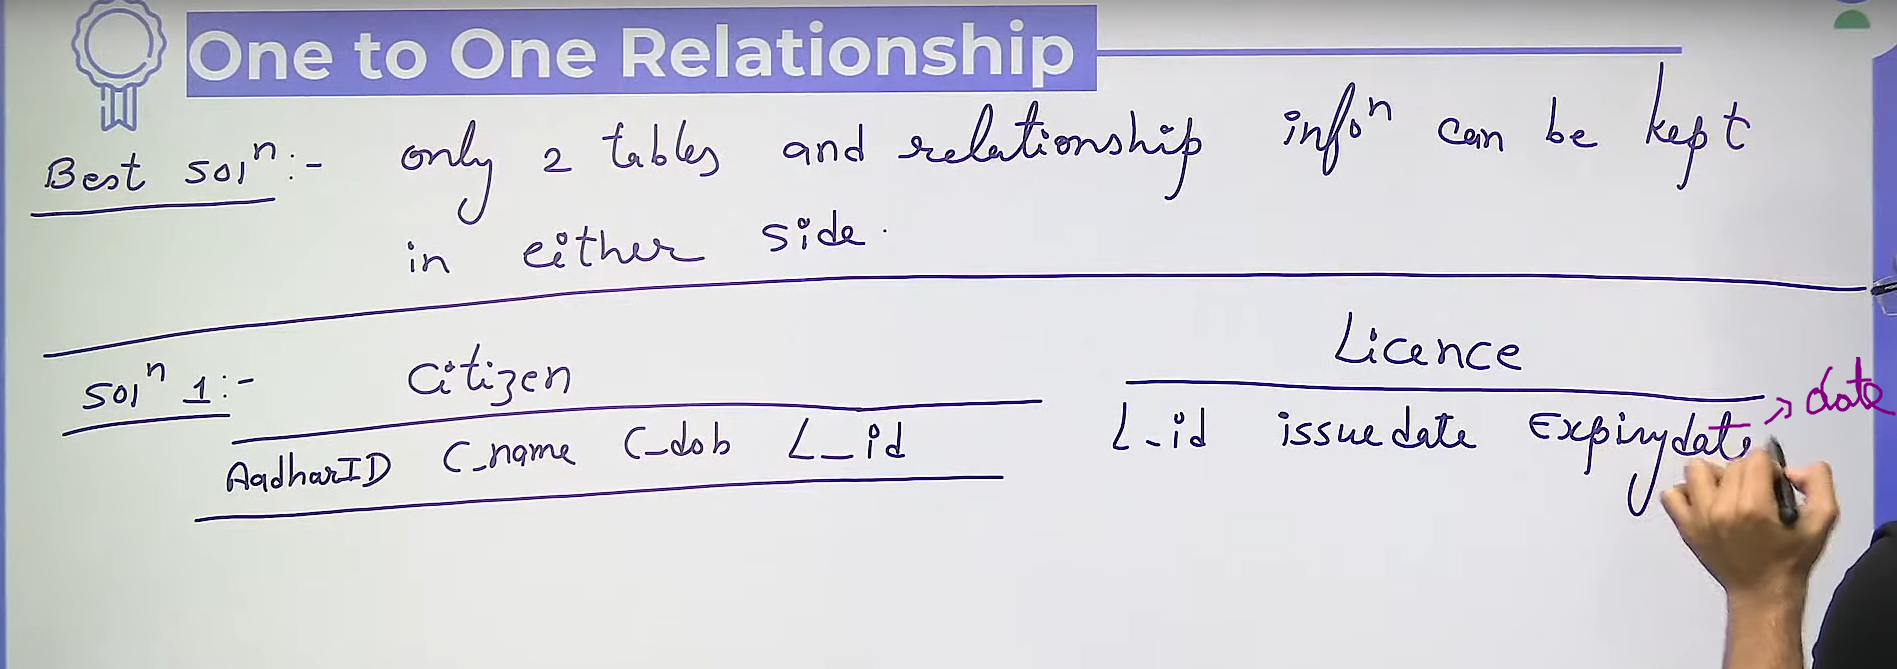 One to One Relationship
Best solⁿ:- only 2 tables and relationship infoⁿ can be kept
in either side.
Solⁿ 1:- Citizen
AadharID C_name C_dob L_id
Licence
L_id issuedate Expirydate → date